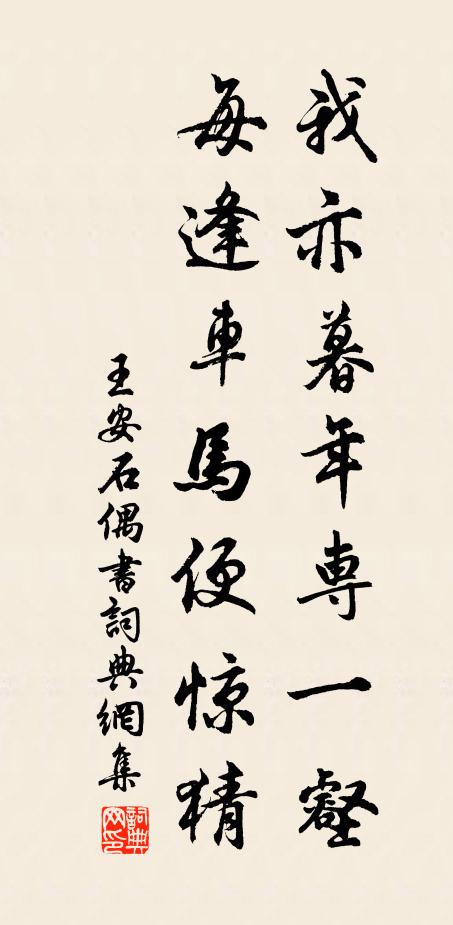 我亦暮年専一壑
每逢車馬便惊猜
王安石偶書詞典網集
詞典網印